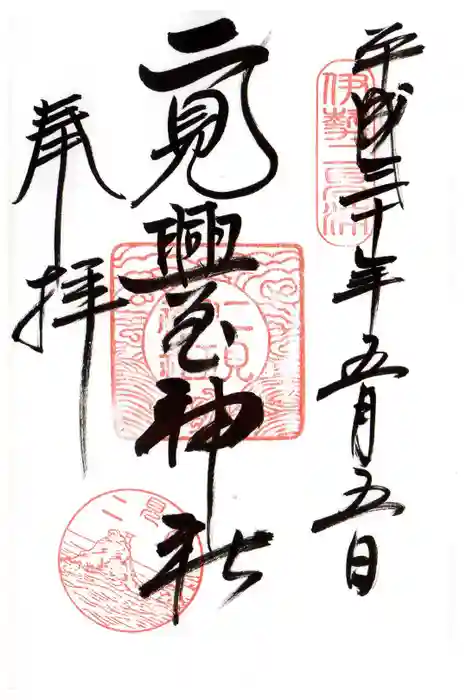 平成三十年五月五日
伊勢二見浦
二見興玉神社
奉拝
二見